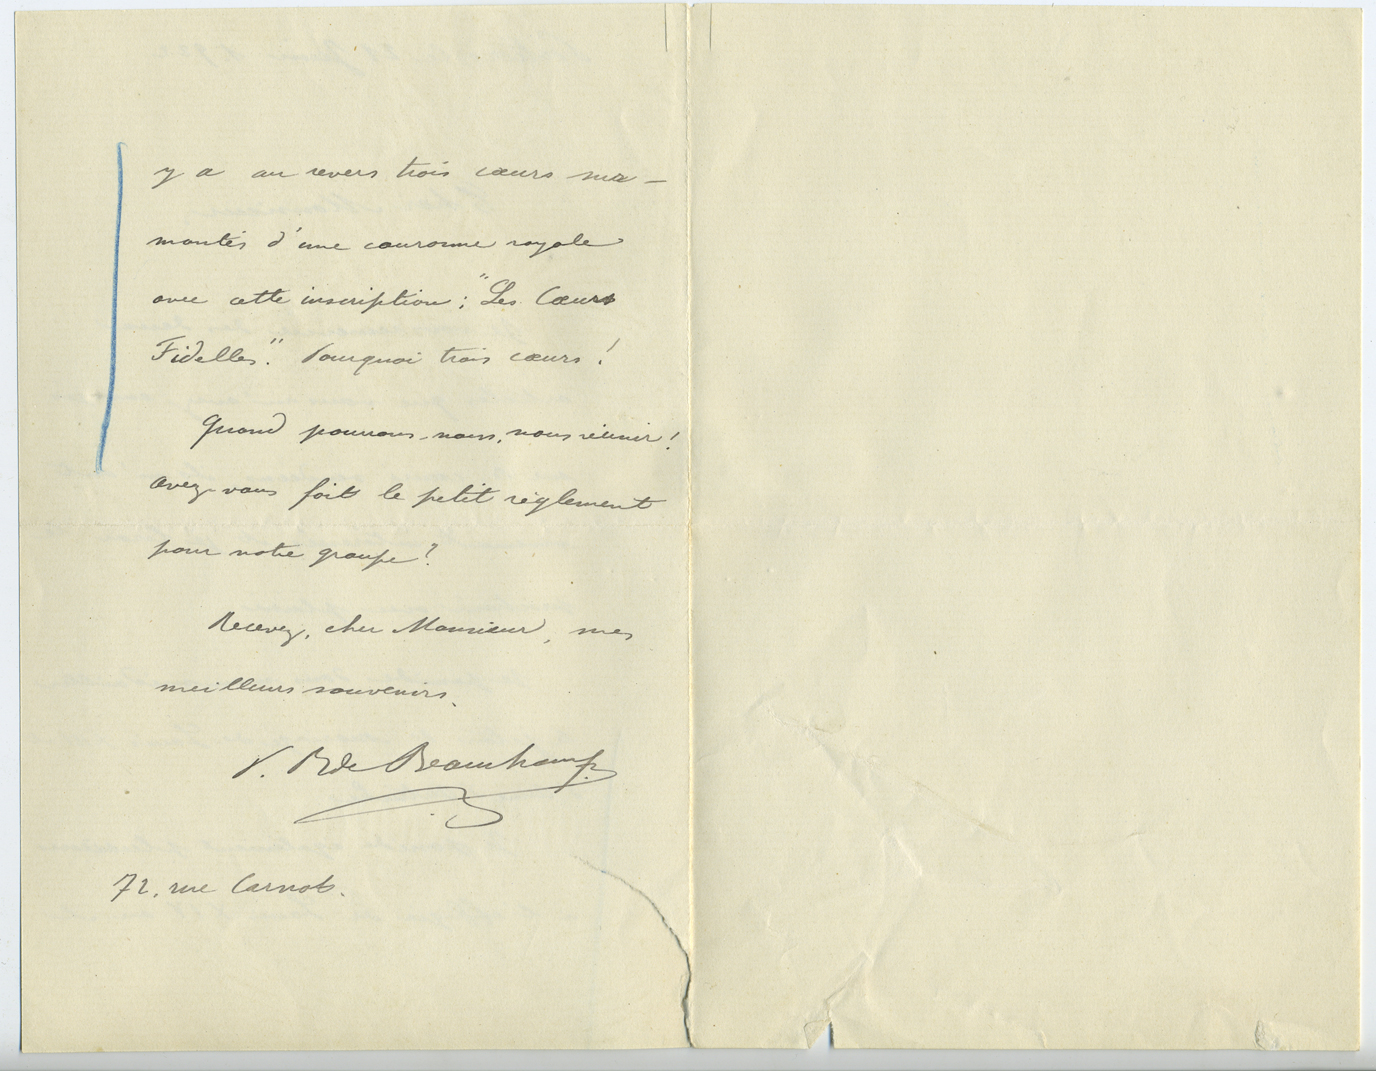 y a au revers trois cœurs sur-
montés d'une couronne royale
avec cette inscription : "Les Cœurs
Fidelles". Pourquoi trois cœurs !
Quand pourrons-nous, nous réunir !
avez-vous fait le petit règlement
pour notre groupe ?
Recevez, cher Monsieur, mes
meilleurs souvenirs.
V. B de Beauchamp
72, rue Carnot.